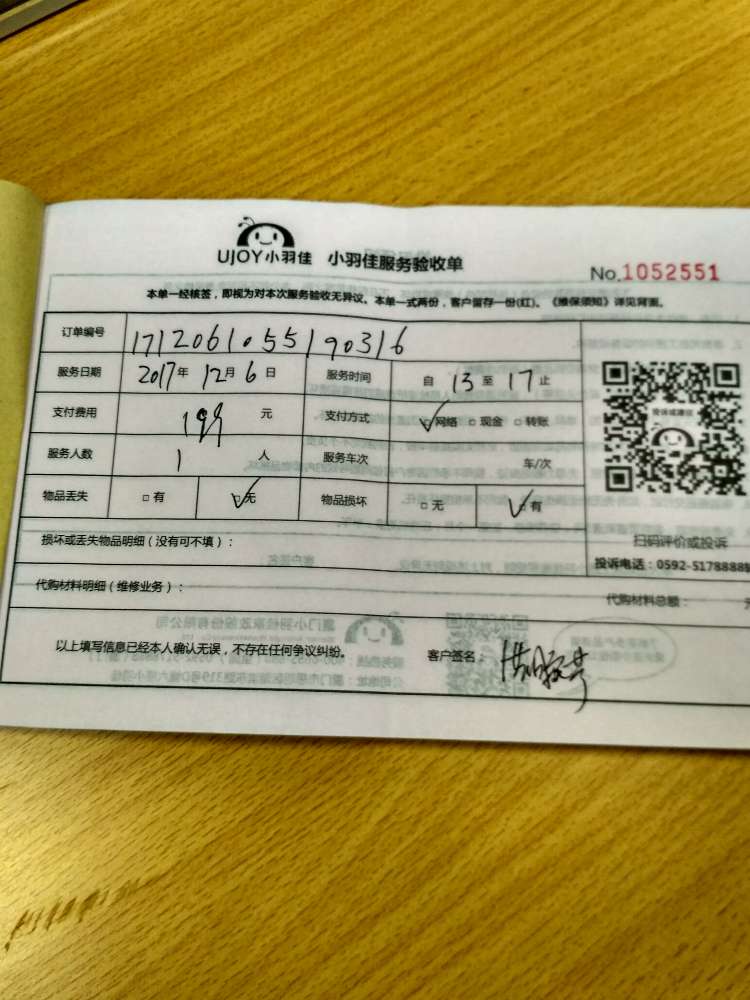 UJOY小羽佳 小羽佳服务验收单
No.1052551
本单一经核签，即视为对本次服务验收无异议。本单一式两份，客户留存一份(红)。《维保须知》详见背面。
订单编号 1712061055190316
服务日期 2017年12月6日 服务时间 自13至17止
支付费用 199元 支付方式 ☑网络 □现金 □转账
服务人数 1人 服务车次 车/次
物品丢失 □有 ☑无 物品损坏 □无 ☑有
投诉或建议
扫码评价或投诉
投诉电话：0592-5178888
损坏或丢失物品明细（没有可不填）：
代购材料明细（维修业务）： 代购材料总额：
以上填写信息已经本人确认无误，不存在任何争议纠纷。 客户签名：